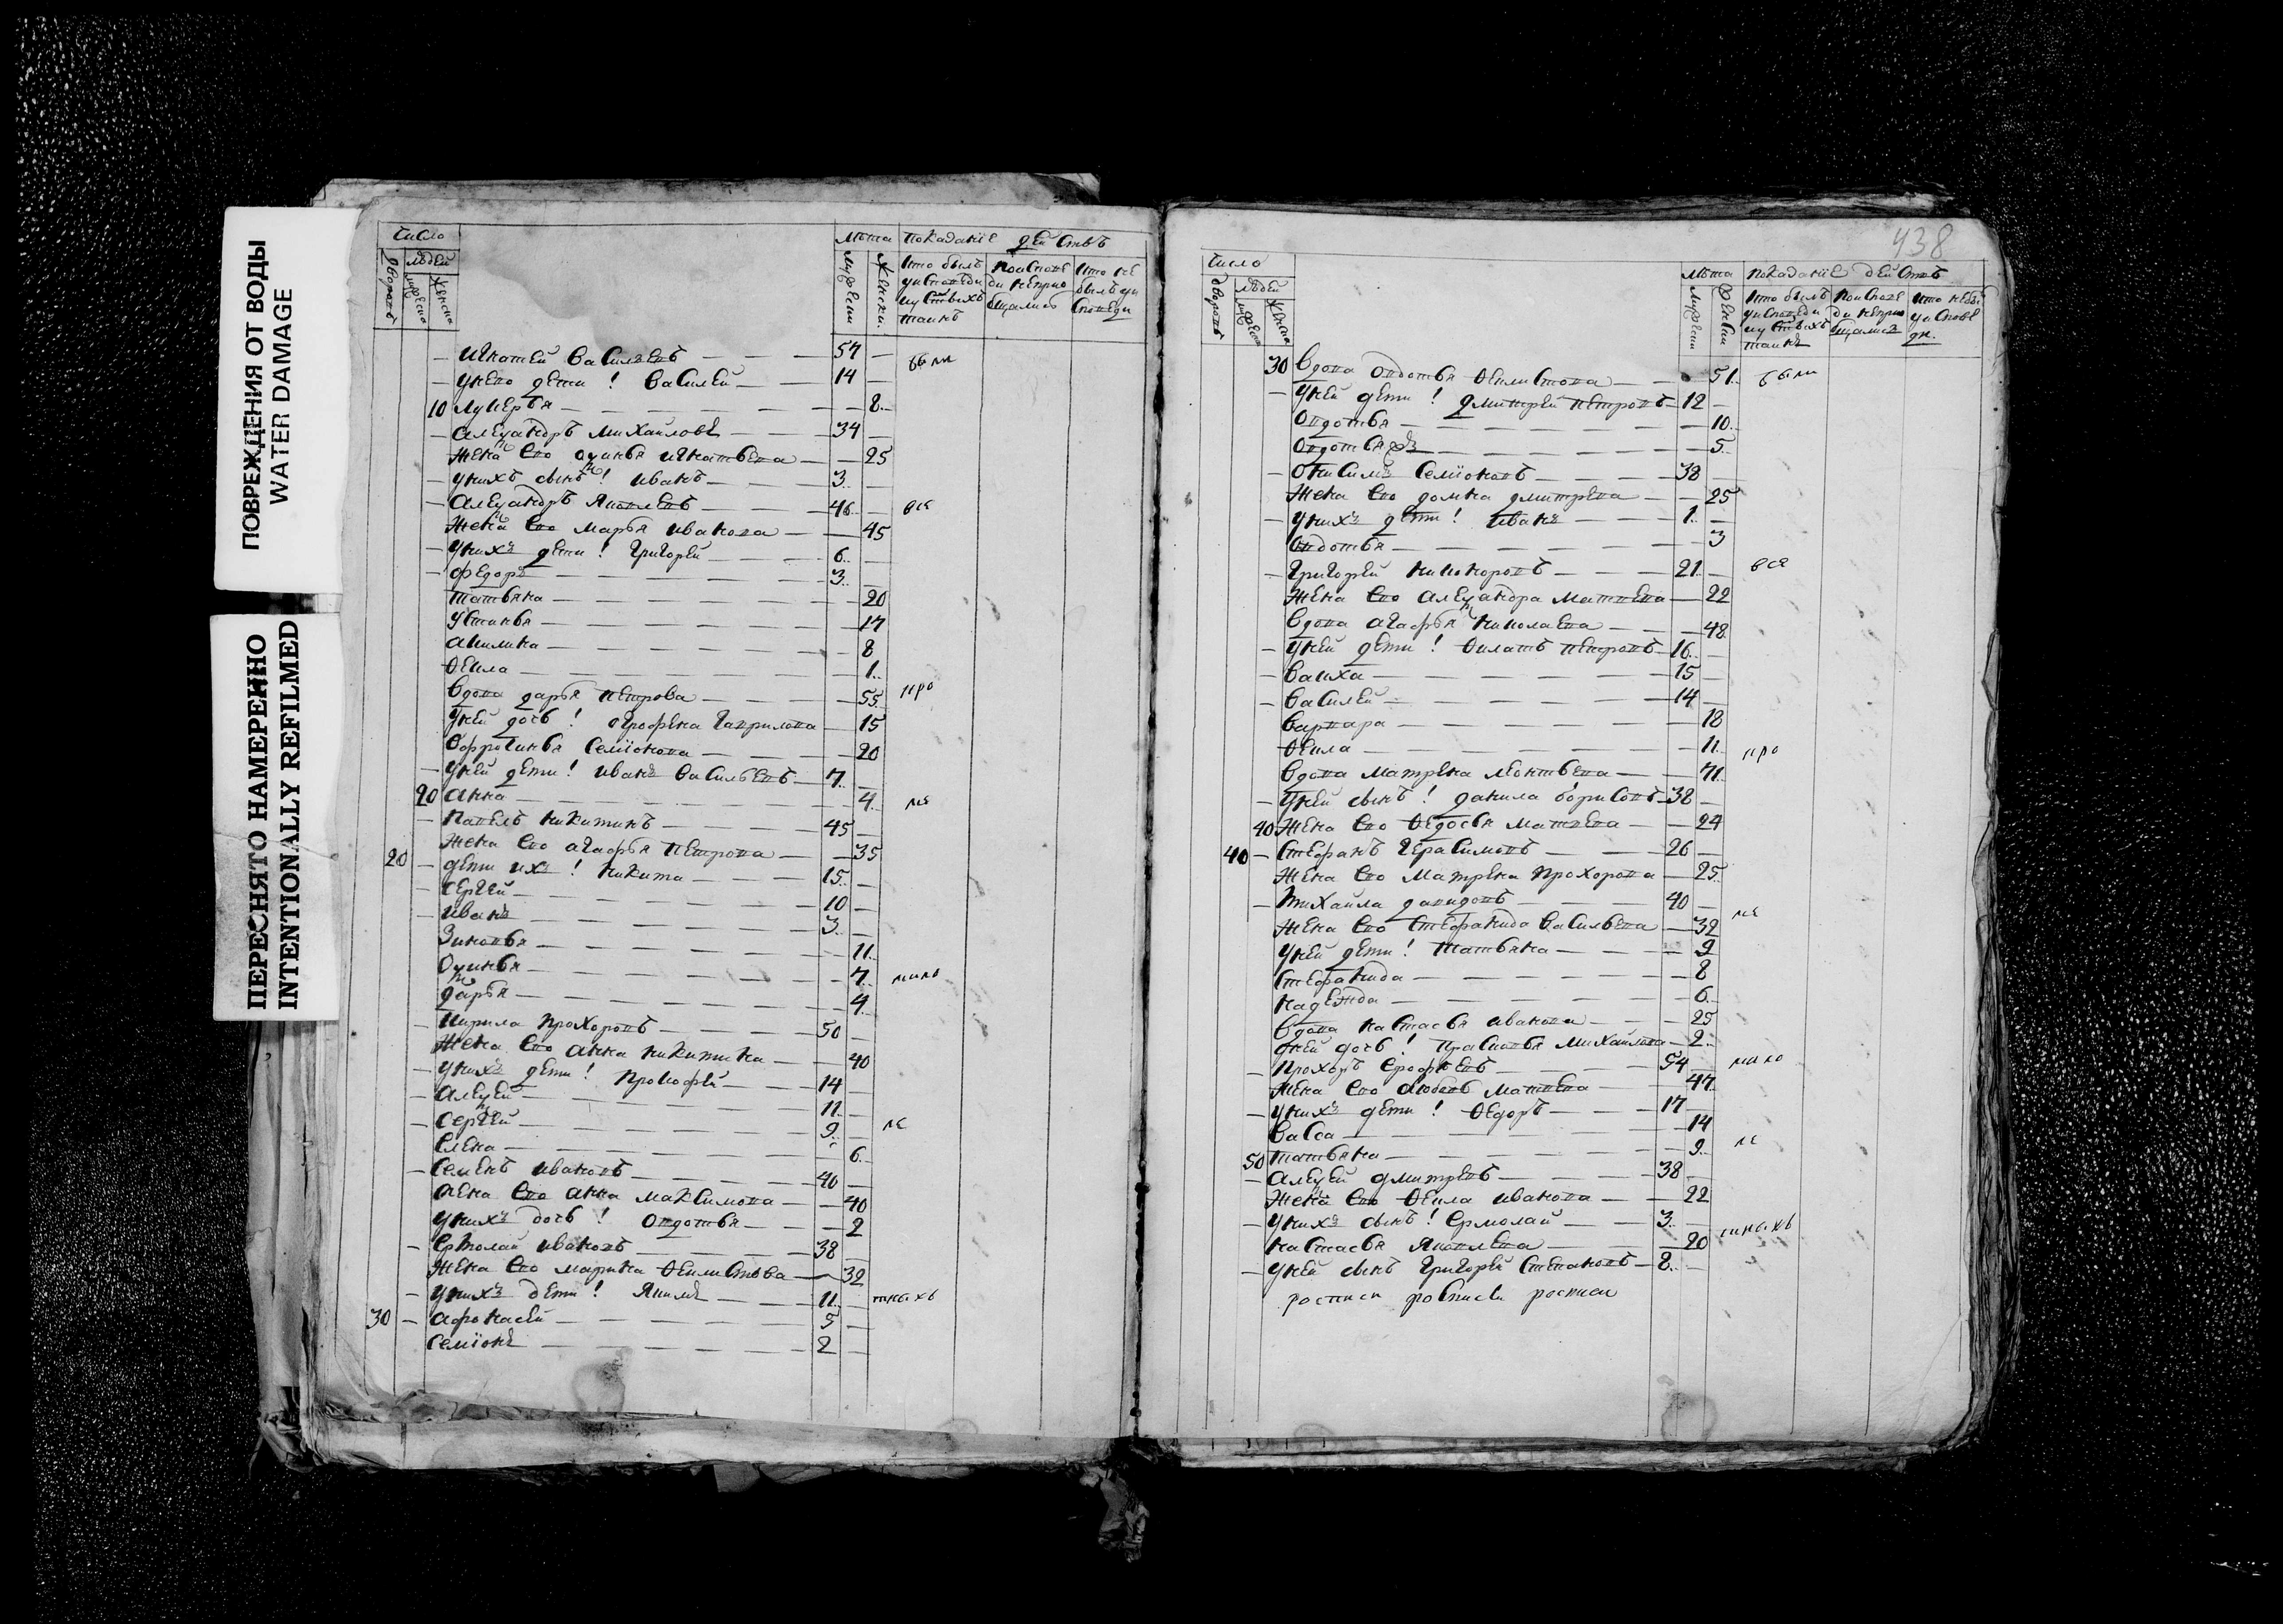 ПОВРЕЖДЕНИЯ ОТ ВОДЫ
WATER DAMAGE
ПЕРЕСНЯТО НАМЕРЕННО
INTENTIONALLY REFILMED
число
людей
дворовъ
мужеска
женска
лѣта
мужески
женски
показанїе действъ
кто былъ у исповеди и у святыхъ таинъ
при исповеди не приобщались
кто не былъ у исповеди
— игнатей василевъ — 57 — были
— у него дети! василей — 14 —
10 лукерья — — 8
— алеѯандръ михайловъ — 34 —
жена его оѯинья игнатьева — — 25
— у нихъ сынъ! иванъ — 3 —
— алеѯандръ яковлевъ — 46 — вся
жена его марья иванова — — 45
— у нихъ дети! григорей — 6 —
— федоръ — 3 —
татьяна — — 20
устинья — — 17
акилина — — 8
ѳекла — — 1
вдова дарья петрова — — 55 про
у ней дочь! огрофена гаврилова — 15
семïонова — — 20
— у ней дети! иванъ васильевъ — 7 —
20 анна — — 4 ме
— павелъ никитинъ — 45 —
жена его агафья петрова — — 35
20 — дети ихъ! никита — 15 —
— сергей — 10 —
— иванъ — 3 —
зиновья — — 11
оѯинья — — 7
дарья — — 4
— кирила прохоровъ — 50 —
жена его анна никитина — — 40
— у нихъ дети! прокофей — 14 —
— алеѯей — 11 —
— сергей — 9 —
елена — — 6
— семенъ ивановъ — 40 —
жена его анна максимова — — 40
у нихъ дочь! овдотья — — 2
— ермолай ивановъ — 38 —
жена его марина — — 32
— у нихъ дети! якимъ — 11 —
30 — афонасей — 5 —
семïонъ — 2 —
438
число
людей
дворовъ
мужеска
женска
лѣта
мужески
женски
показанїе действъ
кто былъ у исповеди и у святыхъ таинъ
при исповеди не приобщались
кто не былъ у исповеди
30 вдова овдотья — — 51 были
— у ней дети! дмитрей петровъ — 12 —
овдотья — — 10
овдотья — — 5
— онисимъ семïоновъ — 38 —
жена его домна дмитрева — — 25
— у нихъ дети! иванъ — 1 —
овдотья — — 3
— григорей никоноровъ — 21 — вся
жена его алеѯандра матвева — — 22
вдова агафья николаева — — 48
— у ней дети! ѳилатъ петровъ — 16 —
— — 15
— василей — 14 —
варвара — — 18
ѳекла — — 11 про
вдова матрена леонтьева — — 71
— у ней сынъ! данила борисовъ — 38 —
40 жена его ѳедосья матвева — — 24
40 — стефанъ герасимовъ — 26 —
жена его матрена прохорова — 25
— михайла давидовъ — 40 —
жена его стефанида васильева — 32 ме
у ней дети! татьяна — — 9
стефанида — — 8
надежда — — 6
вдова настасья иванова — — 25
у ней дочь! прасковья михайлова — 2
— прохоръ ерофеевъ — 54 —
жена его любовь матвева — 47
— у нихъ дети! ѳедоръ — 17
васса — — 14
50 татьяна — — 9
— алеѯей дмитревъ — 38 —
жена его ѳекла иванова — — 22
— у нихъ сынъ! ермолай — 3 —
настасья яковлева — — 20
— у ней сынъ григорей степановъ — 8 —
росписи росписи росписи